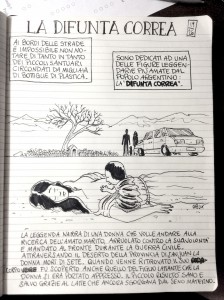 LA DIFUNTA CORREA
AI BORDI DELLE STRADE
È IMPOSSIBILE NON NO-
TARE DI TANTO IN TANTO
DEI PICCOLI SANTUARI
CIRCONDATI DI MIGLIAIA
DI BOTIGLIE DI PLASTICA.
SONO DEDICATI AD UNA
DELLE FIGURE LEGGEN-
DARIE PIÙ AMATE DAL
POPOLO ARGENTINO:
LA "DIFUNTA CORREA".
LA LEGGENDA NARRA DI UNA DONNA CHE VOLLE ANDARE ALLA
RICERCA DELL'AMATO MARITO, ARRUOLATO CONTRO LA SUA VOLONTÀ
E MANDATO AL FRONTE DURANTE LA GUERRA CIVILE.
ATTRAVERSANDO IL DESERTO DELLA PROVINCIA DI SAN JUAN LA
DONNA MORÌ DI SETE. QUANDO VENNE RITROVATO IL SUO
CORPO FU SCOPERTO ANCHE QUELLO DEL FIGLIO LATTANTE CHE LA
DONNA S'ERA PORTATO APPRESSO. IL PICCOLO RIMASE SANO E
SALVO GRAZIE AL LATTE CHE ANCORA SGORGAVA DAL SENO MATERNO.